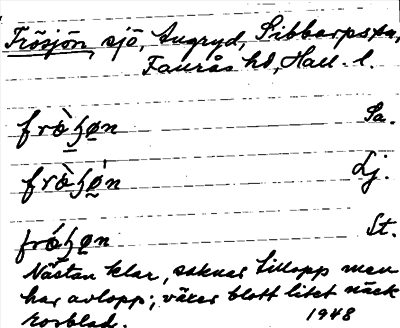 Frösjön, sjö, Augryd, Sibbarps sn,
Faurås hd, Hall. l.
frö̀ʒøn Sa.
frö̀ʒø̀n Lj.
frǿʒøn St.
Nästan klar, saknar tillopp men
har avlopp; växer blott litet näck
rosblad. 1948